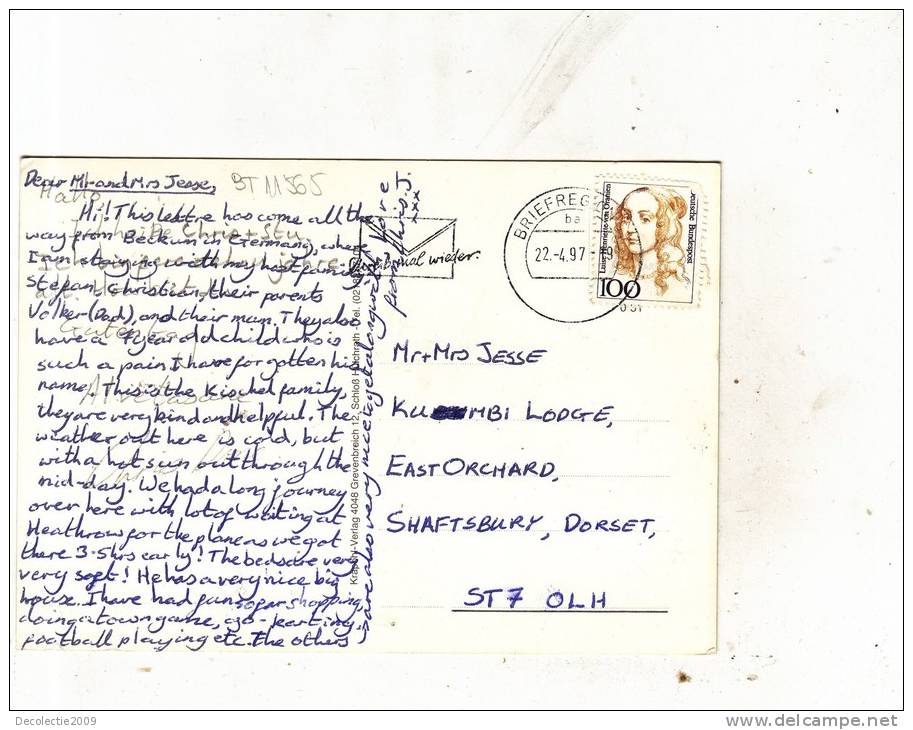 Dear Mr and Mrs Jesse,
BT 11565
Hi! This lettre has come all the
way from Beckum in Germany, where
I am staying with my host family,
Stefan, Christian, their parents
Volker (Dad), and their mum. They also
have a 7 year old child who is
such a pain I have forgotten his
name. This is the Kischel family,
they are very kind and helpful. The
weather out here is cold, but
with a hot sun out through the
mid-day. We had a long journey
over here with lot of waiting at
Heathrow for the plane as we got
there 3-5hrs early! The beds are very
very soft! He has a very nice big
house. I have had fun so far shopping,
doing a town game, go-karting,
football playing etc. The others
are also very nice to get along with
from Chris. J.
xxx
Krapohl-Verlag 4048 Grevenbroich 12, Schloß Hülchrath - Tel.
mal wieder.
BRIEFREG
ba
22.-4.97
Luise Henriette von Oranien
Deutsche Bundespost
100
Mr + Mrs JESSE
KUMBI LODGE,
EAST ORCHARD,
SHAFTSBURY, DORSET,
ST7 0LH
Decolectie2009
www.delcampe.net